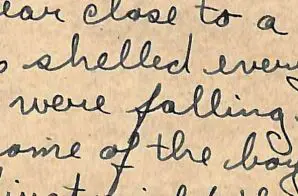 ear close to a
shelled every
were falling.
some of the boy